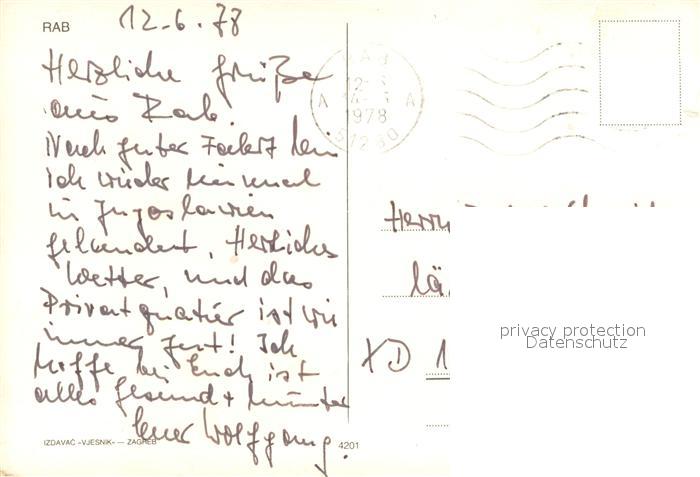 RAB
12.6.78
Herzliche Grüße
aus Rab.
Nach guter Fahrt bin
ich wieder einmal
in Jugoslawien
gelandet. Herrliches
Wetter, und das
Privatquatier ist wie
immer gut! Ich
hoffe bei Euch ist
alles gesund + munter
Euer Wolfgang.
IZDAVAČ »VJESNIK« — ZAGREB
4201
RAB
12-6
1978
51280
A A
Herrn
XD 1
privacy protection
Datenschutz